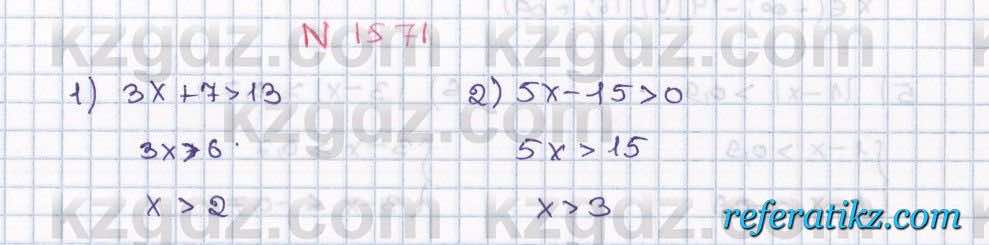 N 1571
1) 3x+7>13
3x>6
x > 2
2) 5x-15>0
5x > 15
x>3
kzgdz.com
kzgdz.com
kzgdz.com
kzgdz.com
referatikz.com